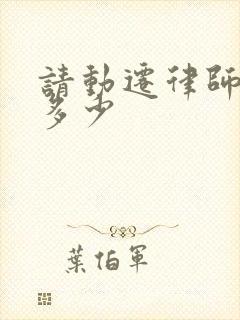 請動遷律師
多少
葉伯軍